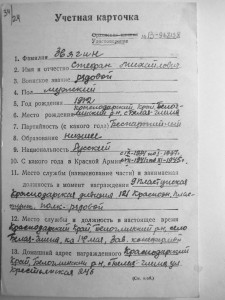 Учетная карточка
1. Фамилия Звягин
2. Имя и отчество Стефан
3. Воинское звание рядовой
4. Пол мужской
5. Год рождения 1912
6. Место рождения Краснодарский край, Белоглинский р-н, с. Белая-Глина
7. Партийность (с какого года) Беспартийный
8. Образование низшее
9. Национальность Русский
10. С какого года в Красной Армии
11. Место службы (наименование части) и занимаемая
должность в момент награждения 9 Пластунская
Краснодарская дивизия 121 Краснозн. Плас-
тунск. полк - рядовой
12. Место службы и должность в настоящее время
Краснодарский край, Белоглинский р-н, село
Белая-Глина, зав.
13. Домашний адрес награжденного Краснодарский
край, Белоглинский р-н, с. Белая-Глина ул
Крестьянская